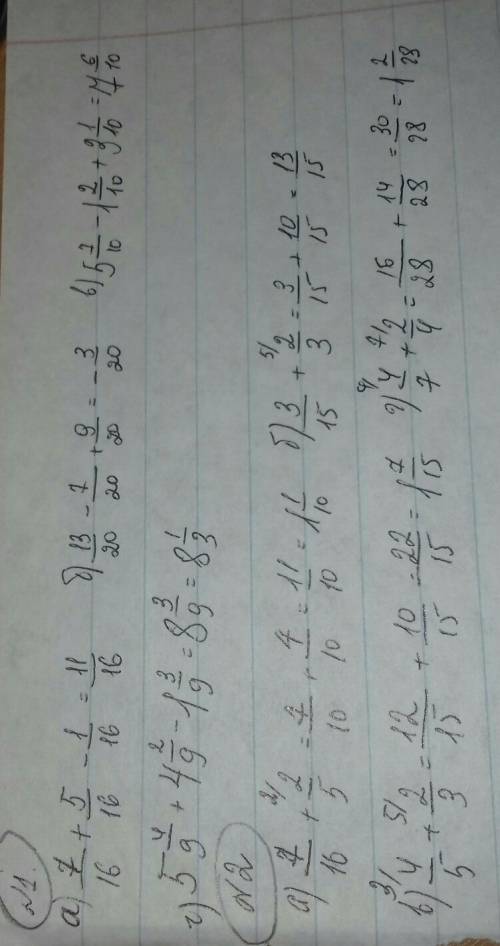 №1.
а) 7/16 + 5/16 - 1/16 = 11/16 б) 13/20 - 7/20 + 9/20 = - 3/20 в) 5 7/10 - 1 2/10 + 9 1/10 = 4 6/10
г) 5 4/9 + 4 2/9 - 1 3/9 = 8 3/9 = 8 1/3
№2
а) 7/10 + 2/ 2/5 = 7/10 + 4/10 = 11/10 = 1 1/10 б) 3/15 + 5/ 2/3 = 3/15 + 10/15 = 13/15
в) 3/ 4/5 + 5/ 2/3 = 12/15 + 10/15 = 22/15 = 1 7/15 г) 4/ 4/7 + 7/ 2/4 = 16/28 + 14/28 = 30/28 = 1 2/28